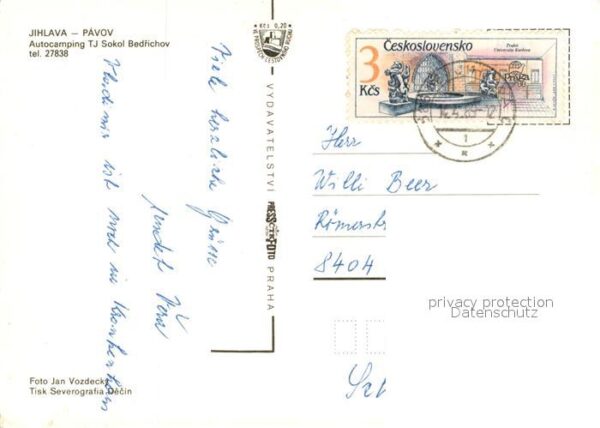 JIHLAVA – PÁVOV
Autocamping TJ Sokol Bedřichov
tel. 27838
Kčs 0,20
VYDAVATELSTVÍ
PRESSFOTO
PRAHA
Viele herzliche Grüsse
sendet Věra
Vladimir ist noch im Krankenhaus
3 Kčs
Československo
Praha
Univerzita Karlova
Praga
Herr
Willi Beer
Römerst
8404
privacy protection
Datenschutz
Foto Jan Vozdecký
Tisk Severografia Děčín